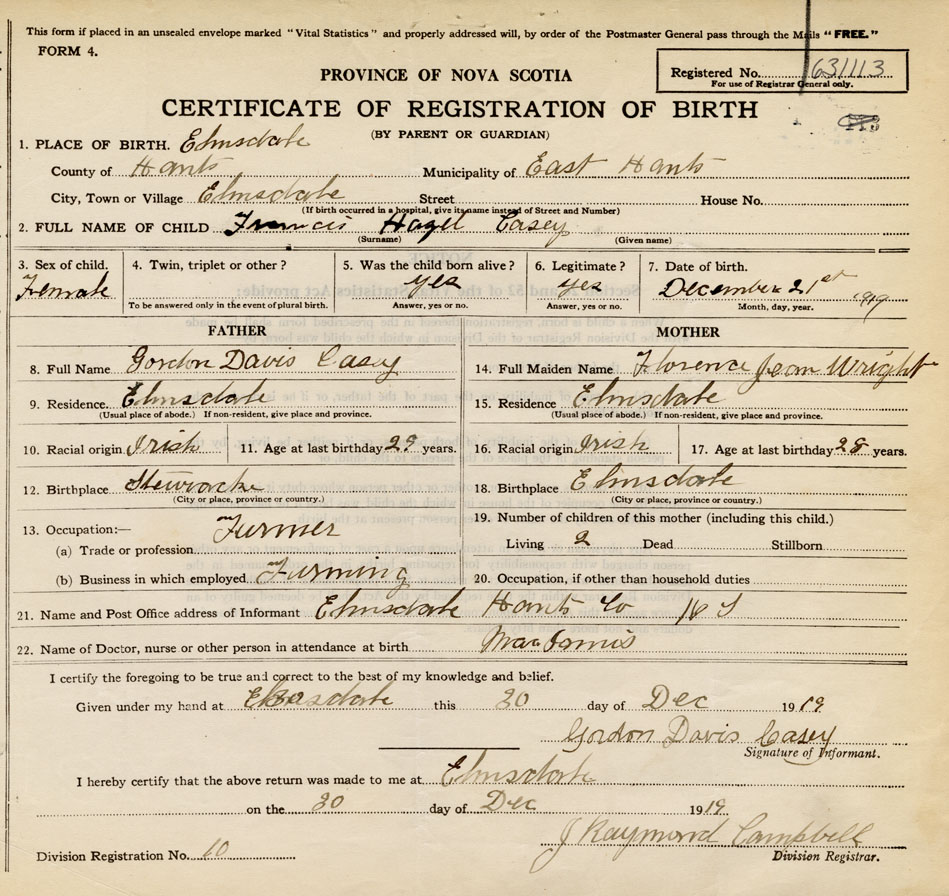 This form if placed in an unsealed envelope marked "Vital Statistics" and properly addressed will, by order of the Postmaster General pass through the Mails "FREE."
FORM 4.
Registered No. 631113
For use of Registrar General only.
PROVINCE OF NOVA SCOTIA
CERTIFICATE OF REGISTRATION OF BIRTH
(BY PARENT OR GUARDIAN)
1. PLACE OF BIRTH. Elmsdale
County of Hants Municipality of East Hants
City, Town or Village Elmsdale Street House No.
(If birth occurred in a hospital, give its name instead of Street and Number)
2. FULL NAME OF CHILD Francis Hazel Casey
(Surname) (Given name)
3. Sex of child. 4. Twin, triplet or other? 5. Was the child born alive? 6. Legitimate? 7. Date of birth.
Female yes yes December 21st 1919
To be answered only in the event of plural birth. Answer, yes or no. Answer, yes or no. Month, day, year.
FATHER MOTHER
8. Full Name Gordon Davis Casey 14. Full Maiden Name Florence Jean Wright
9. Residence. Elmsdale 15. Residence Elmsdale
(Usual place of abode.) If non-resident, give place and province. (Usual place of abode.) If non-resident, give place and province.
10. Racial origin Irish 11. Age at last birthday 29 years. 16. Racial origin Irish 17. Age at last birthday 28 years.
12. Birthplace 18. Birthplace Elmsdale
(City or place, province or country.) (City or place, province or country.)
13. Occupation:— Farmer 19. Number of children of this mother (including this child.)
(a) Trade or profession Living 2 Dead Stillborn
(b) Business in which employed Farming 20. Occupation, if other than household duties
21. Name and Post Office address of Informant Elmsdale Hants Co N S
22. Name of Doctor, nurse or other person in attendance at birth
I certify the foregoing to be true and correct to the best of my knowledge and belief.
Given under my hand at Elmsdale this 30 day of Dec 1919
Gordon Davis Casey
Signature of Informant.
I hereby certify that the above return was made to me at Elmsdale
on the 30 day of Dec 1919
J Raymond Campbell
Division Registration No. 10 Division Registrar.